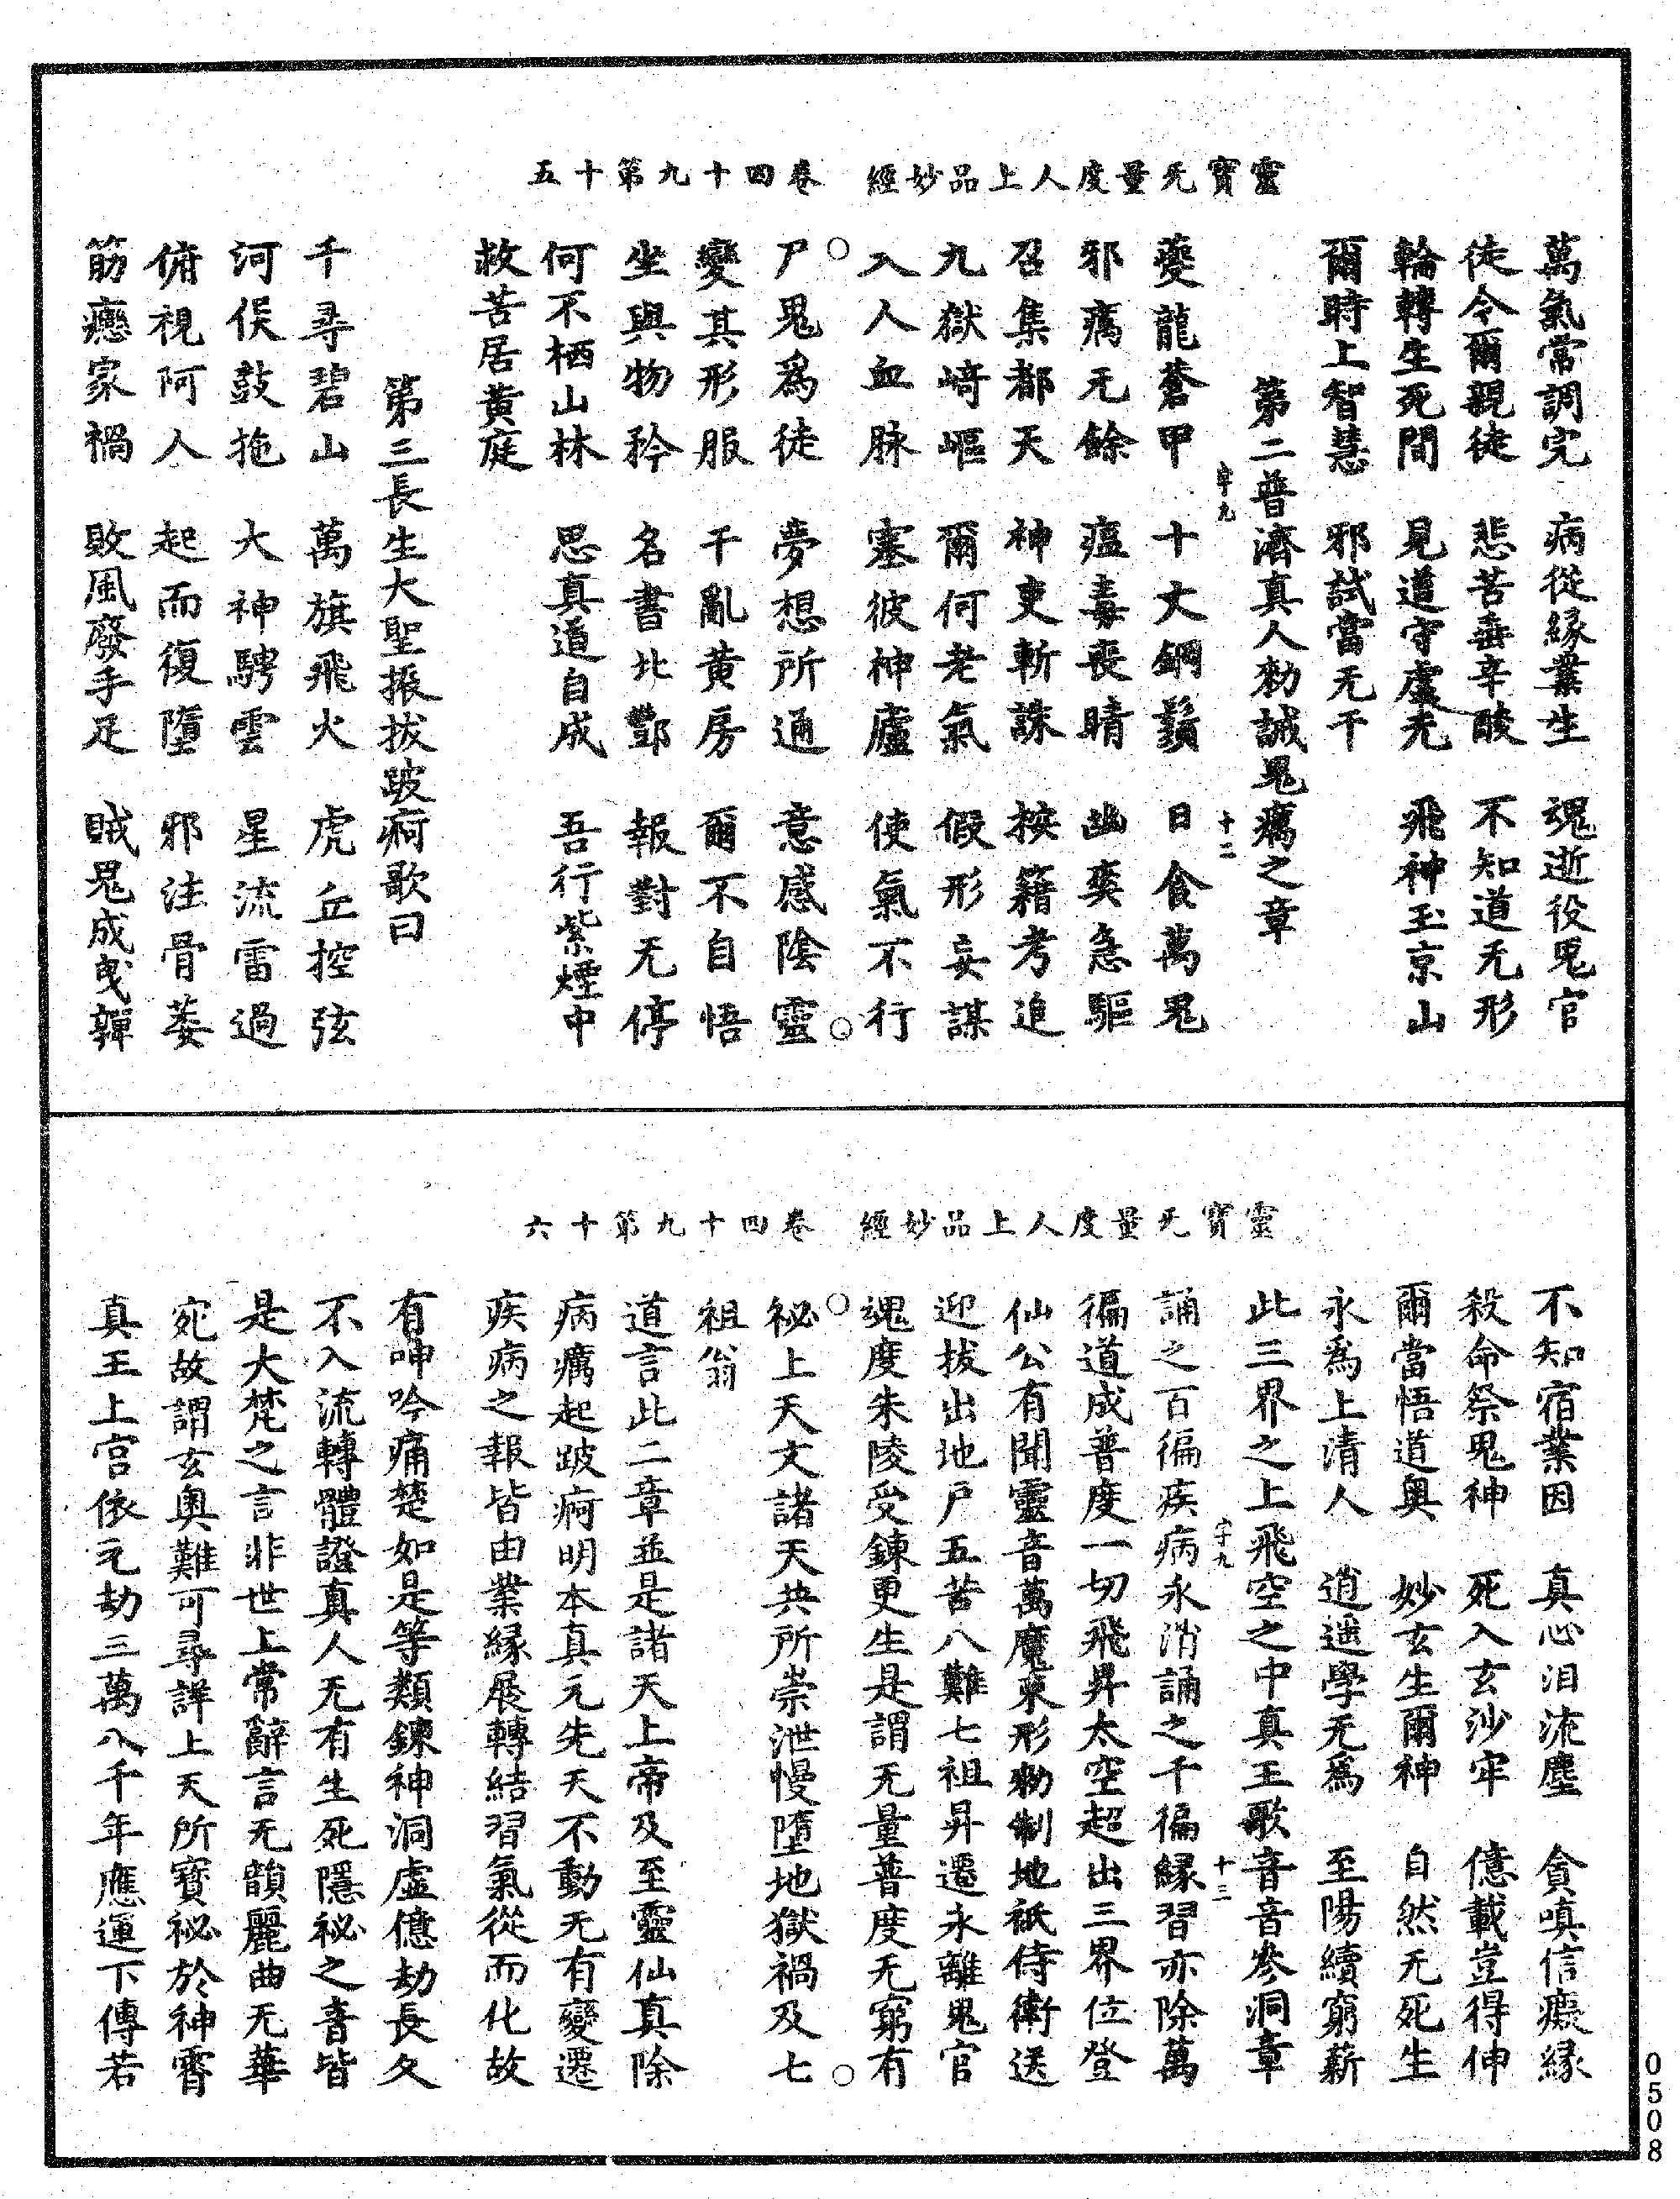 靈寶无量度人上品妙經　卷四十九第十五
萬氣常調完　病從緣業生　魂逝役鬼官
徒令爾親徒　悲苦垂辛酸　不知道无形
輪轉生死間　見道守虛无　飛神玉京山
爾時上智慧　邪試當无干
第二普濟真人勑誠鬼癘之章
夔龍蒼甲　十丈鋼鬚　日食萬鬼
邪癘无餘　瘟毒喪睛　幽奕急驅
召集都天　神吏斬誅　按籍考追
九獄崎嶇　爾何老氣　假形妄謀
入人血脉　塞彼神廬　使氣不行
尸鬼爲徒　夢想所通　意感陰靈
變其形服　干亂黄房　爾不自悟
坐與物矜　名書北酆　報對无停
何不栖山林　思真道自成　吾行紫煙中
救苦居黄庭
第三長生大聖振拔跛痾歌曰
千尋碧山　萬旗飛火　虎丘控弦
河侯鼓拖　大神騁雲　星流雷過
俯視阿人　起而復墮　邪注骨萎
筋癋家禍　敗風廢手足　賊鬼成曳軃
靈寶无量度人上品妙經　卷四十九第十六
不知宿業因　真心汨流塵　貪嗔信癡緣
殺命祭鬼神　死入玄沙牢　億載豈得伸
爾當悟道奥　妙玄生爾神　自然无死生
永爲上清人　逍遥學无爲　至陽續窮薪
此三界之上飛空之中真王歌音音參洞章
誦之百徧疾病永消誦之千徧緣習亦除萬
徧道成普度一切飛昇太空超出三界位登
仙公有聞靈音萬魔束形勑制地祇侍衛送
迎拔出地户五苦八難七祖昇遷永離鬼官
魂度朱陵受鍊更生是謂无量普度无窮有
祕上天文諸天共所崇泄慢墮地獄禍及七
祖翁
道言此二章並是諸天上帝及至靈仙真除
病癘起跛痾明本真元先天不動无有變遷
疾病之報皆由業緣展轉結習氣從而化故
有呻吟痛楚如是等類鍊神洞虛億劫長久
不入流轉體證真人无有生死隱祕之音皆
是大梵之言非世上常辭言无韻麗曲无華
宛故謂玄奧難可尋詳上天所寶祕於神霄
真王上宫依元劫三萬八千年應運下傳若
0508